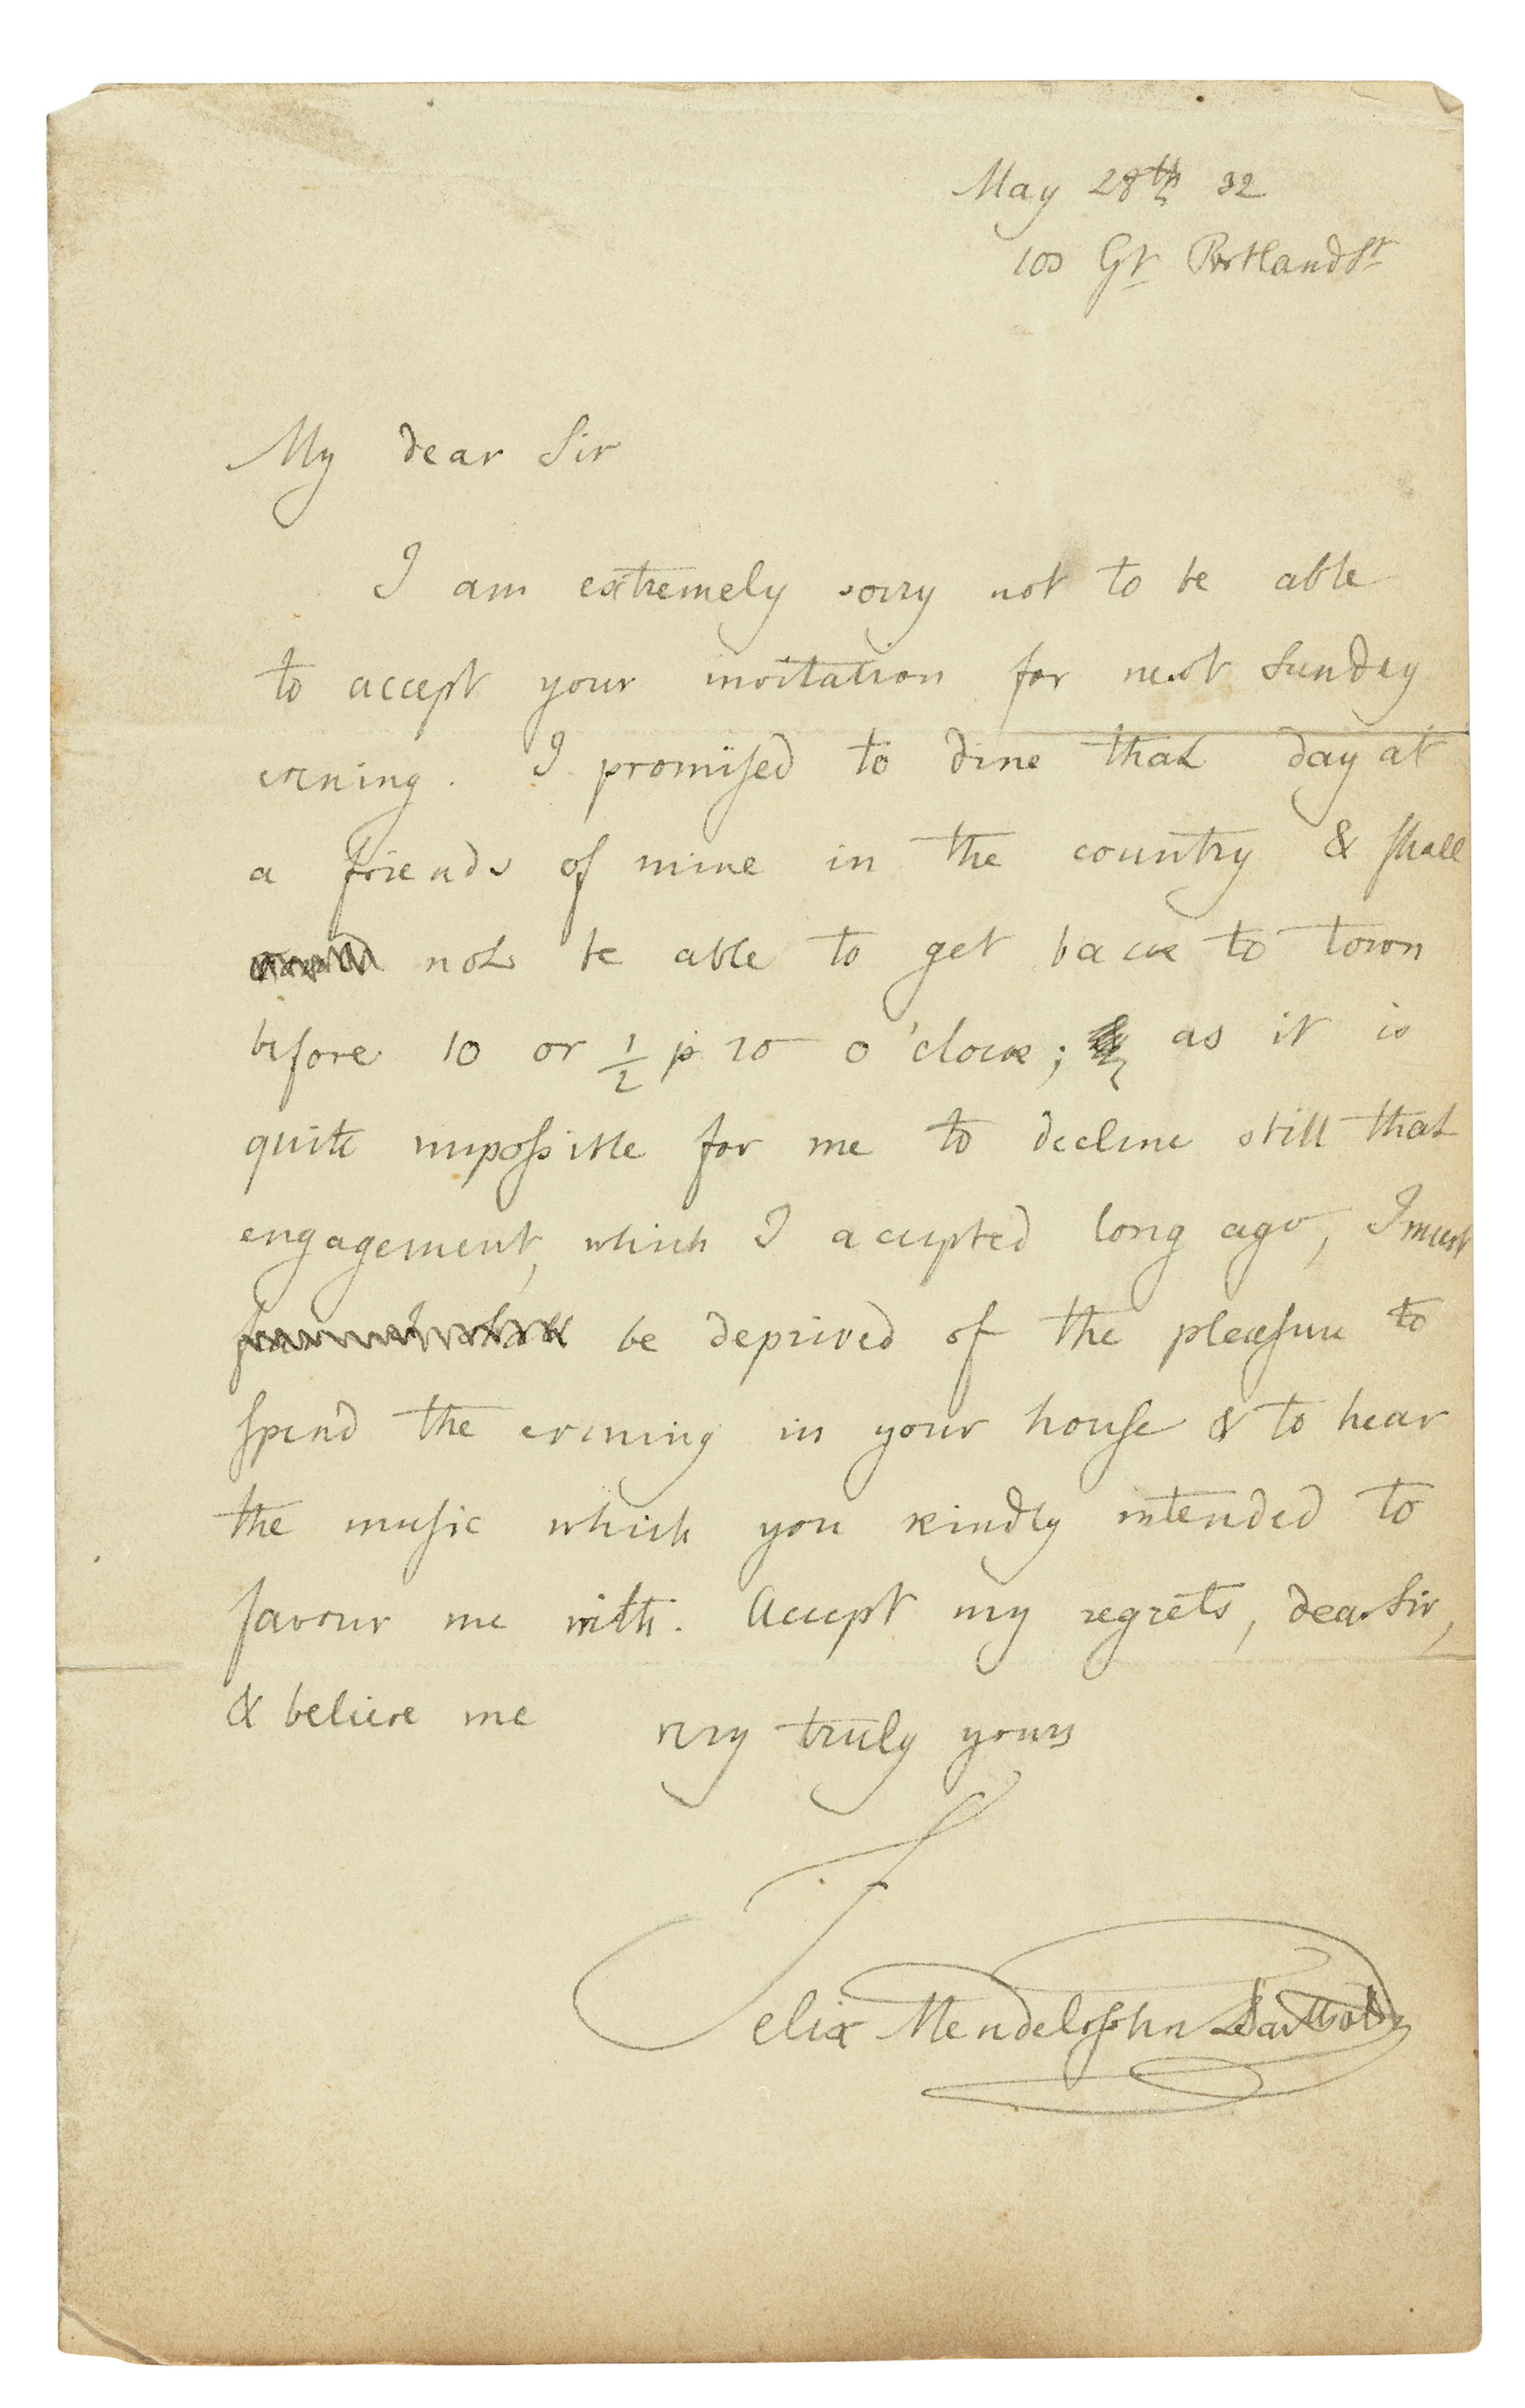 May 28th 32
103 Gt Portland St
My dear Sir
I am extremely sorry not to be able
to accept your invitation for next Sunday
evening. I promised to dine that day at
a friends of mine in the country & shall
not be able to get back to town
before 10 or 1/2 p 10 o'clock; as it is
quite impossible for me to decline still that
engagement, which I accepted long ago, I must
be deprived of the pleasure to
spend the evening in your house & to hear
the music which you kindly intended to
favour me with. Accept my regrets, dear Sir,
& believe me very truly yours
Felix Mendelssohn Bartholdy